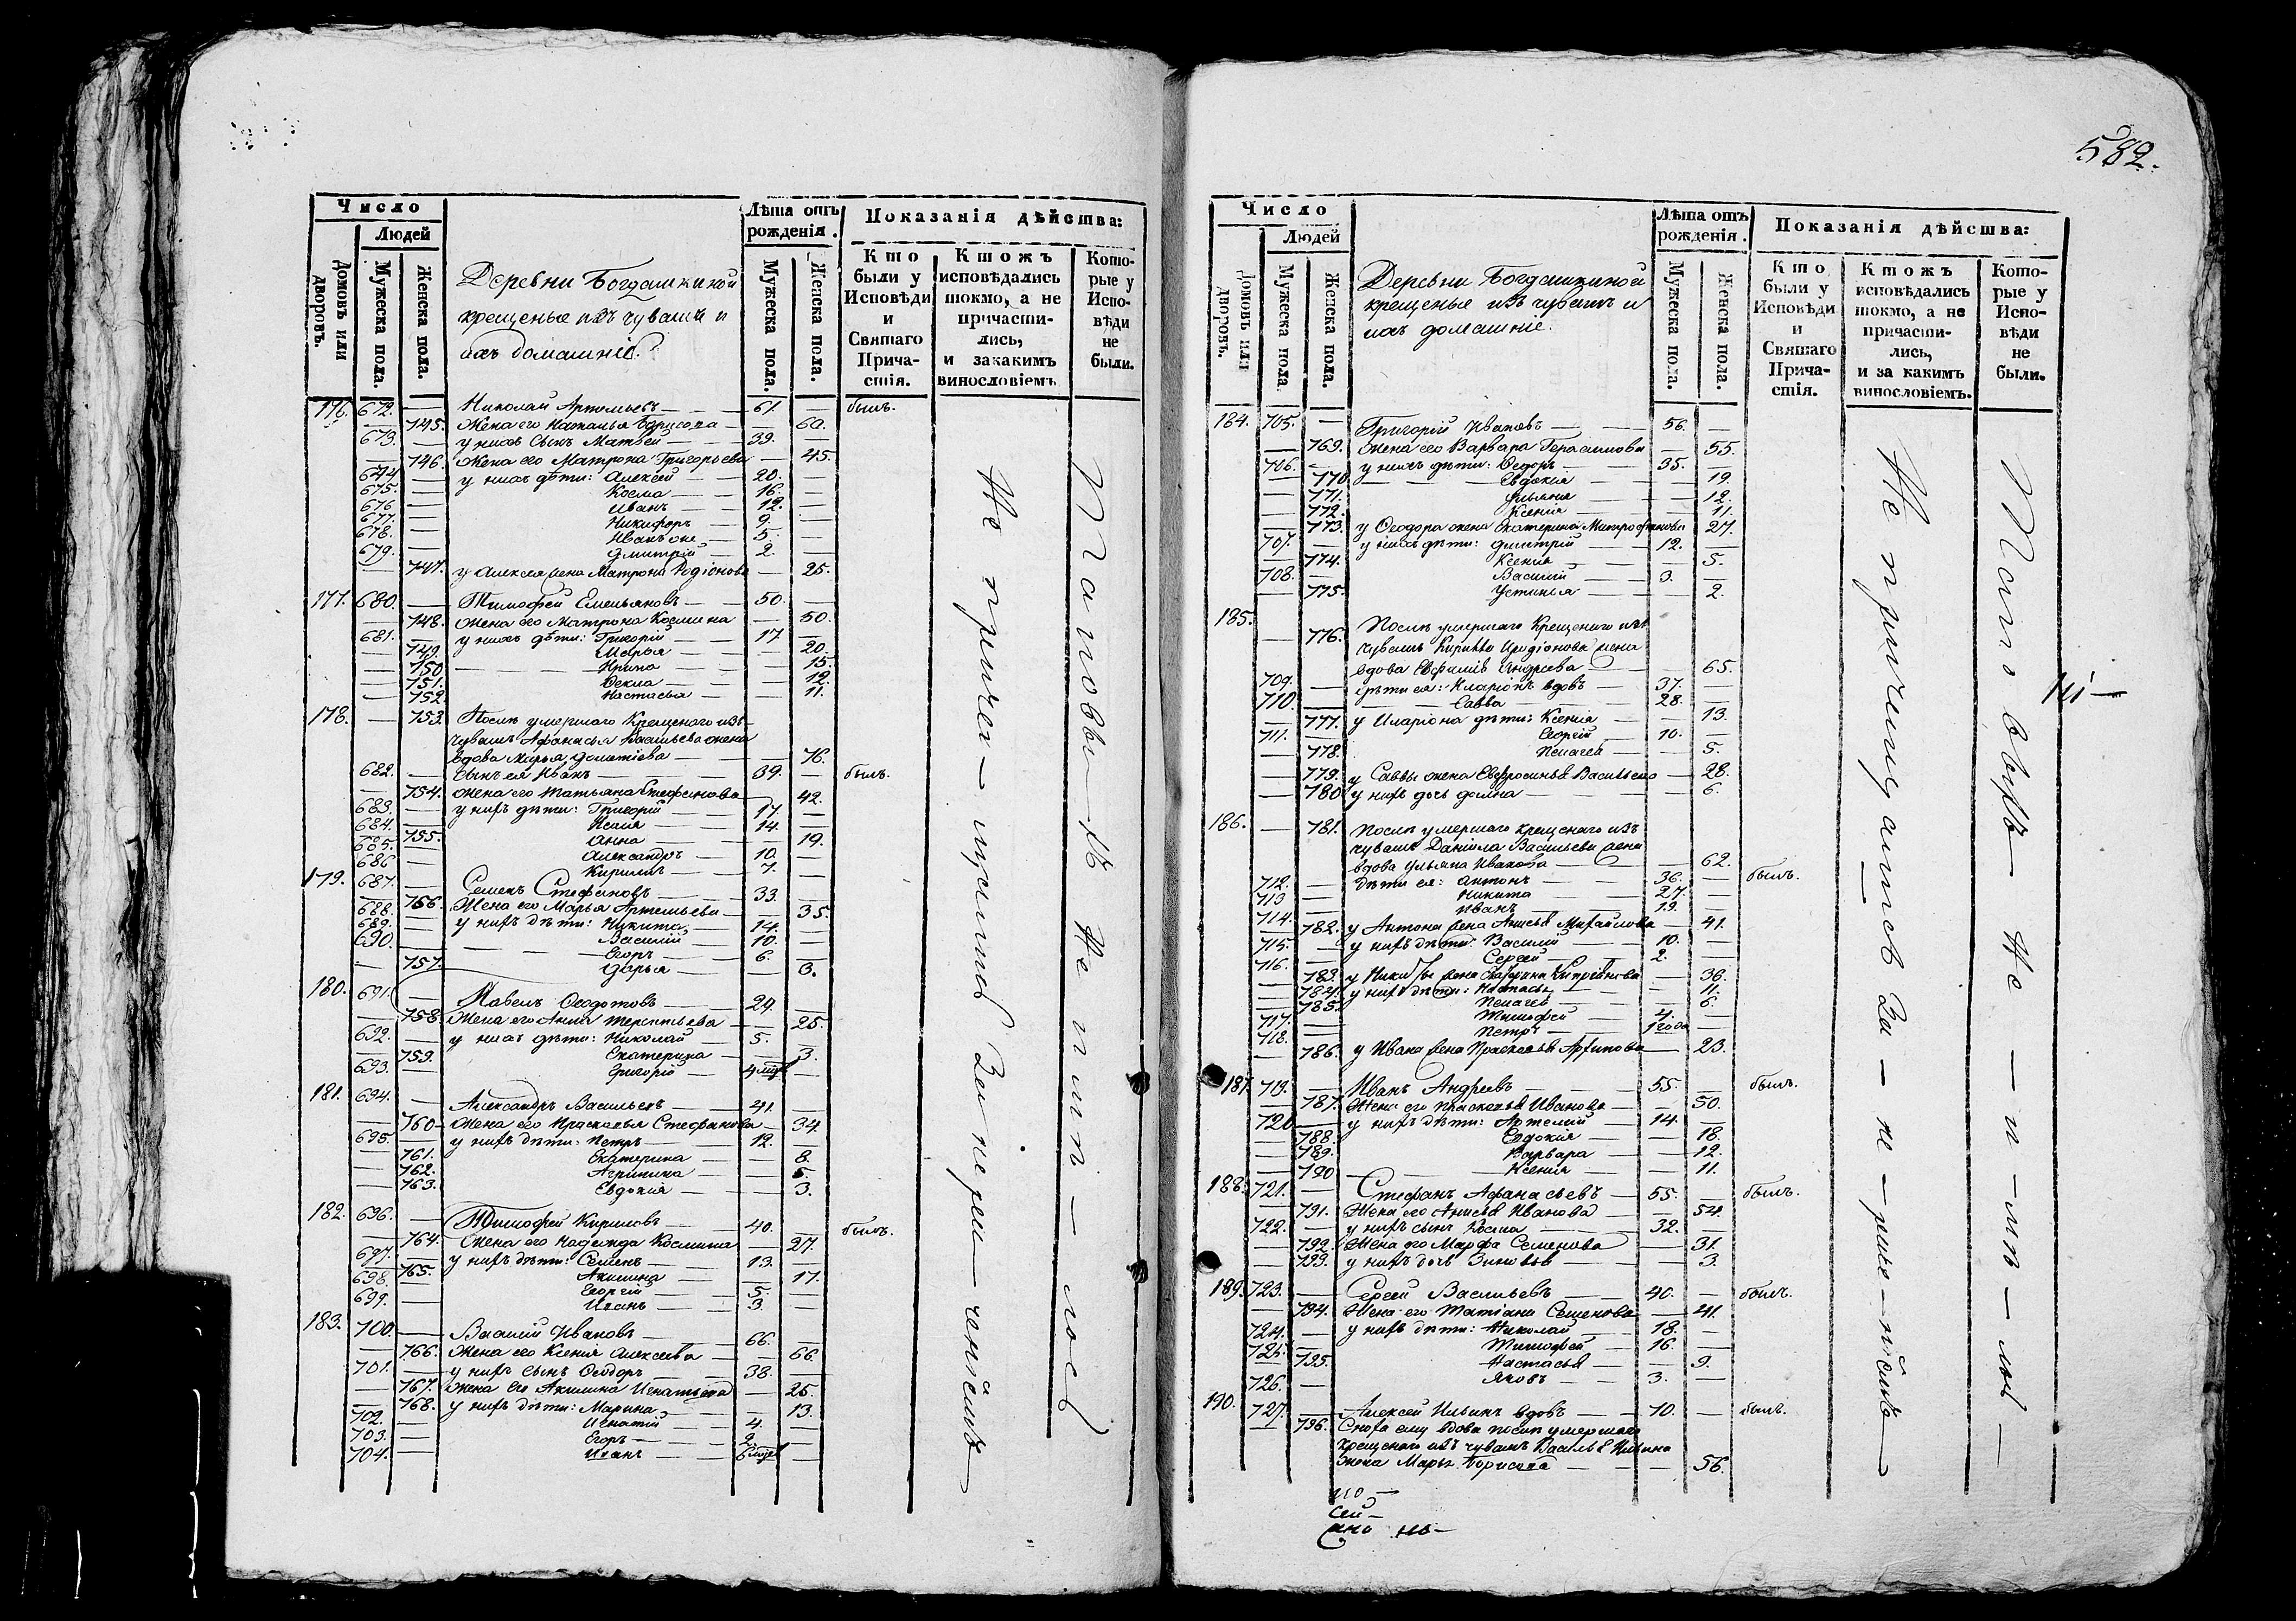 582.
Число
Людей
Домовъ или дворовъ.
Мужеска пола.
Женска пола.
Деревни Богдашкиной
крещеные изъ чувашъ и
ихъ домашніе.
Лѣта отъ рожденія.
Мужеска пола.
Женска пола.
Показанія дѣйства:
Кто были у Исповѣди и Святаго Причастія.
Ктожъ исповѣдались токмо, а не причастились, и закакимъ винословіемъ
Которые у Исповѣди не были.
176. 672. — Николай Артемьевъ — 61. — былъ.
— 745. Жена его Наталья Борисова — 60.
673. — у нихъ сынъ Матвей — 39. —
— 746. Жена его Матрона Григорьева — 45.
674 — у нихъ дѣти: Алексей — 20. —
675. — Косма — 16. —
676 — Иванъ — 12. —
677. — Никифоръ — 9. —
678. — Иванъ же — 5. —
679. — Дмитрій — 2. —
— 747. у Алексея жена Матрона Родіонова — 25.
177. 680. — Тимофей Емельяновъ — 50. —
— 748. Жена его Матрона Космина — 50.
681. — у нихъ дѣти: Григорій — 17 —
— 749. Марья — 20.
— 750 Ирина — 15.
— 751. Фекла — 12.
— 752. Настасья — 11.
178. — 753. Послѣ умершаго Крещенаго изъ
чувашъ Афанасья Васильева жена
вдова Марья — 76.
682. — Сынъ ея Иванъ — 39. — былъ.
— 754. Жена его Татьяна Стефанова — 42.
683. — у нихъ дѣти: Григорій — 17. —
684. — Исаія — 14. —
— 755. Анна — 19.
685. — Александръ — 10. —
686 — Кирилъ — 7. —
179. 687. — Семенъ Стефановъ — 33. —
— 756. Жена его Марья Артемьева — 35.
688. — у нихъ дѣти: Никита — 14. —
689. — Василій — 10. —
690. — Егоръ — 6. —
— 757. Дарья — 3.
180. 691. — Павелъ Федотовъ — 24. —
— 758. Жена его Анна Терентьева — 25.
692. — у нихъ дѣти: Николай — 5. —
— 759. Екатерина — 3.
693. — Григорій — 4 —
181. 694. — Александръ Васильевъ — 41. —
— 760 Жена его Прасковья Стефанова — 34.
695. — у нихъ дѣти: Петръ — 12. —
— 761. Екатерина — 8.
— 762. Агрипина — 5.
— 763. Евдокія — 3.
182. 696. — Тимофей Кириловъ — 40. — былъ.
— 764. Жена его Надежда Космина — 27.
697. — у нихъ дѣти: Семенъ — 13. —
— 765. Акилина — 17.
698. — Георгій — 5. —
699. — Иванъ — 3. —
183. 700. — Василій Ивановъ — 66. —
— 766. Жена его Ксенія Алексеева — 66.
701. — у нихъ сынъ Федоръ — 38. —
— 767. Жена его Акилина Игнатьева — 25.
— 768. у нихъ дѣти: Марина — 13.
702. — Игнатій — 4. —
703. — Егоръ — 2. —
704. — Иванъ — 6 —
Число
Людей
Домовъ или дворовъ.
Мужеска пола.
Женска пола.
Деревни Богдашкиной
крещеные изъ чувашъ и
ихъ домашніе.
Лѣта отъ рожденія.
Мужеска пола.
Женска пола.
Показанія дѣйства:
Кто были у Исповѣди и Святаго Причастія.
Ктожъ исповѣдались токмо, а не причастились, и за какимъ винословіемъ.
Которые у Исповѣди не были.
184. 705. — Григорій Ивановъ — 56. —
— 769. Жена его Варвара Герасимова — 55.
706. — у нихъ дѣти: Федоръ — 35. —
— 770 Евдокія — 19.
— 771. Ульяна — 12.
— 772. Ксенія — 11.
— 773. у Феодора жена Екатерина Митрофанова 27.
707. — у нихъ дѣти: Дмитрій — 12. —
— 774. Ксенія — 5.
708. — Василій — 3. —
— 775. Устинья — 2.
185. — 776. Послѣ умершаго Крещенаго изъ
чувашъ Кирилла Иродіонова жена
вдова Евфимія Андреева — 65.
709. — дѣти ея: Иларіонъ вдовъ — 37. —
710. — Савва — 28. —
— 777. у Иларіона дѣти: Ксенія — 13.
711. — Георгій — 10. —
— 778. Пелагея — 5.
— 779. у Саввы жена Евфросинья Васильева — 28.
— 780 у нихъ дочь Домна — 6.
186. — 781. Послѣ умершаго крещенаго изъ
чувашъ Даніила Васильева жена
вдова Ульяна Иванова — 62.
712. — Дѣти ея: Антонъ — 36. — былъ.
713 — Никита — 27. —
714. — Иванъ — 19. —
— 782. у Антона жена Анисья Михайлова — 41.
715. — у нихъ дѣти: Василій — 10. —
716. — Сергей — 2. —
— 783. у Никиты жена Катерина Кипріянова — 36.
— 784. у нихъ дѣти: Настасья — 11.
— 785. Пелагея — 6.
717. — Тимофей — 4. —
718. — Петръ — 1 года —
— 786. у Ивана жена Прасковья Архипова — 23.
187. 719. — Иванъ Андреевъ — 55. — былъ.
— 787. Жена его Прасковья Иванова — 50.
720 — у нихъ дѣти: Артемій — 14. —
— 788. Евдокія — 18.
— 789. Варвара — 12.
— 790 Ксенія — 11.
188. 721. — Стефанъ Афанасьевъ — 55. — былъ.
— 791. Жена его Анисья Иванова — 54.
722. — у нихъ сынъ Косма — 32. —
— 792. Жена его Марфа Семенова — 31.
— 793. у нихъ дочь Зиновья — 3.
189. 723. — Сергей Васильевъ — 40. — былъ.
— 794. Жена его Татіана Семенова — 41.
724. — у нихъ дѣти: Николай — 18. —
725. — Тимофей — 16. —
— 795. Настасья — 9.
726. — Яковъ — 3. —
190. 727. — Алексей Ильинъ вдовъ — 70. — былъ.
— 796. Сноха ему вдова послѣ умершаго
крещенаго изъ чувашъ Василья Ильина
жена Марья Борисова — 56.